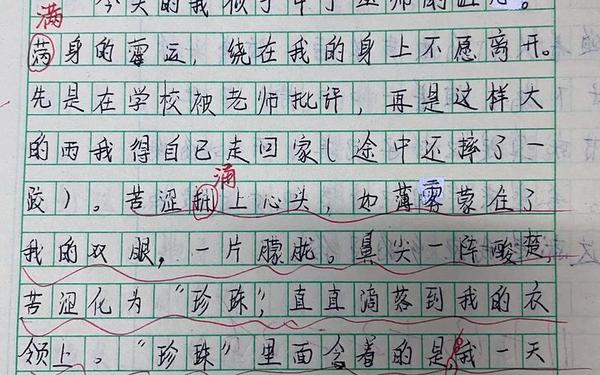 满
满身的霉运，绕在我的身上不愿离开。
先是在学校被老师批评，再是这样大
的雨我得自己走回家（途中还摔了一
跤）。苦涩涌上心头，如薄雾蒙住了
我的双眼，一片朦胧。鼻尖一阵酸楚，
苦涩化为“珍珠”，直直滴落到我的衣
领上。“珍珠”里面含着的是我一天